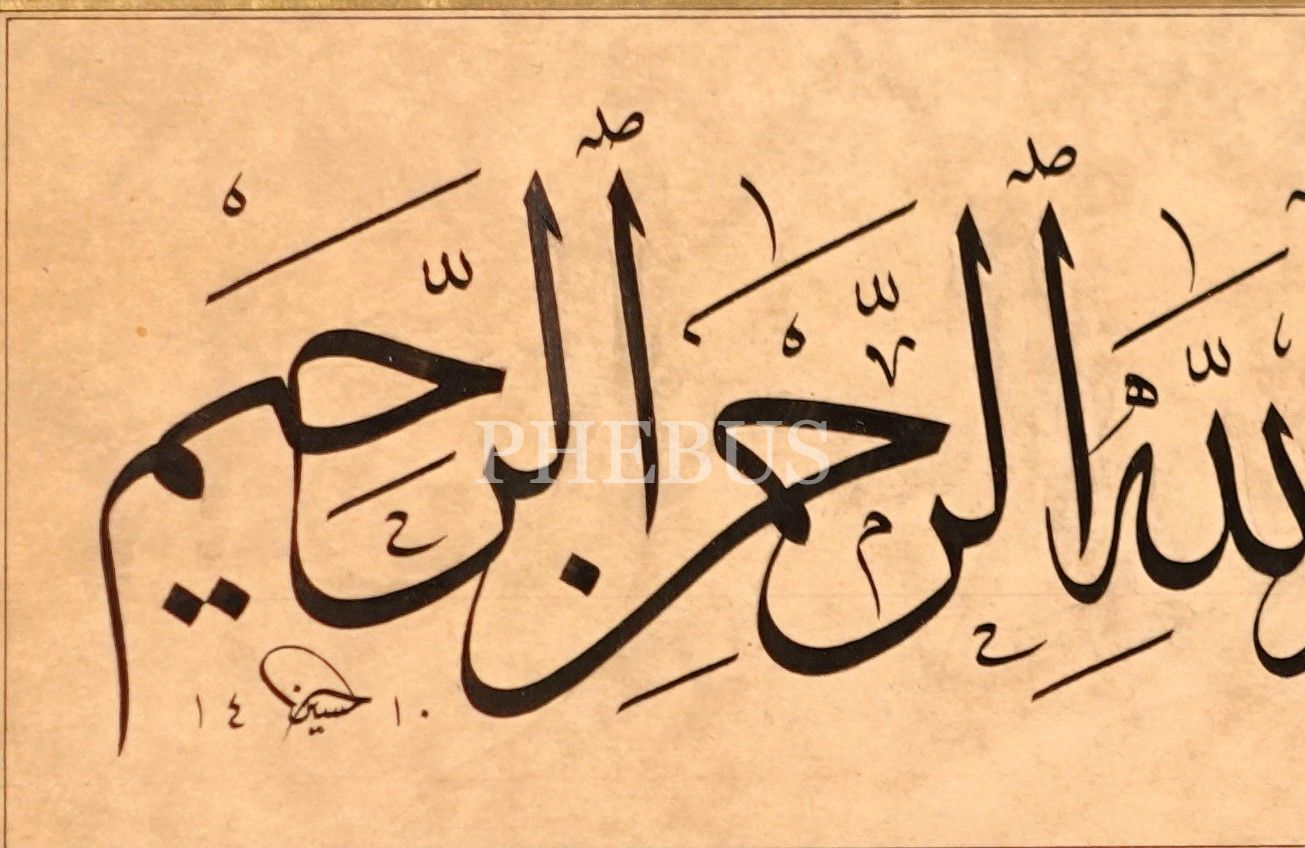 ٱللّٰهِ ٱلرَّحْمٰنِ ٱلرَّحِيمِ
١٤ حسين ١٠
PHEBUS